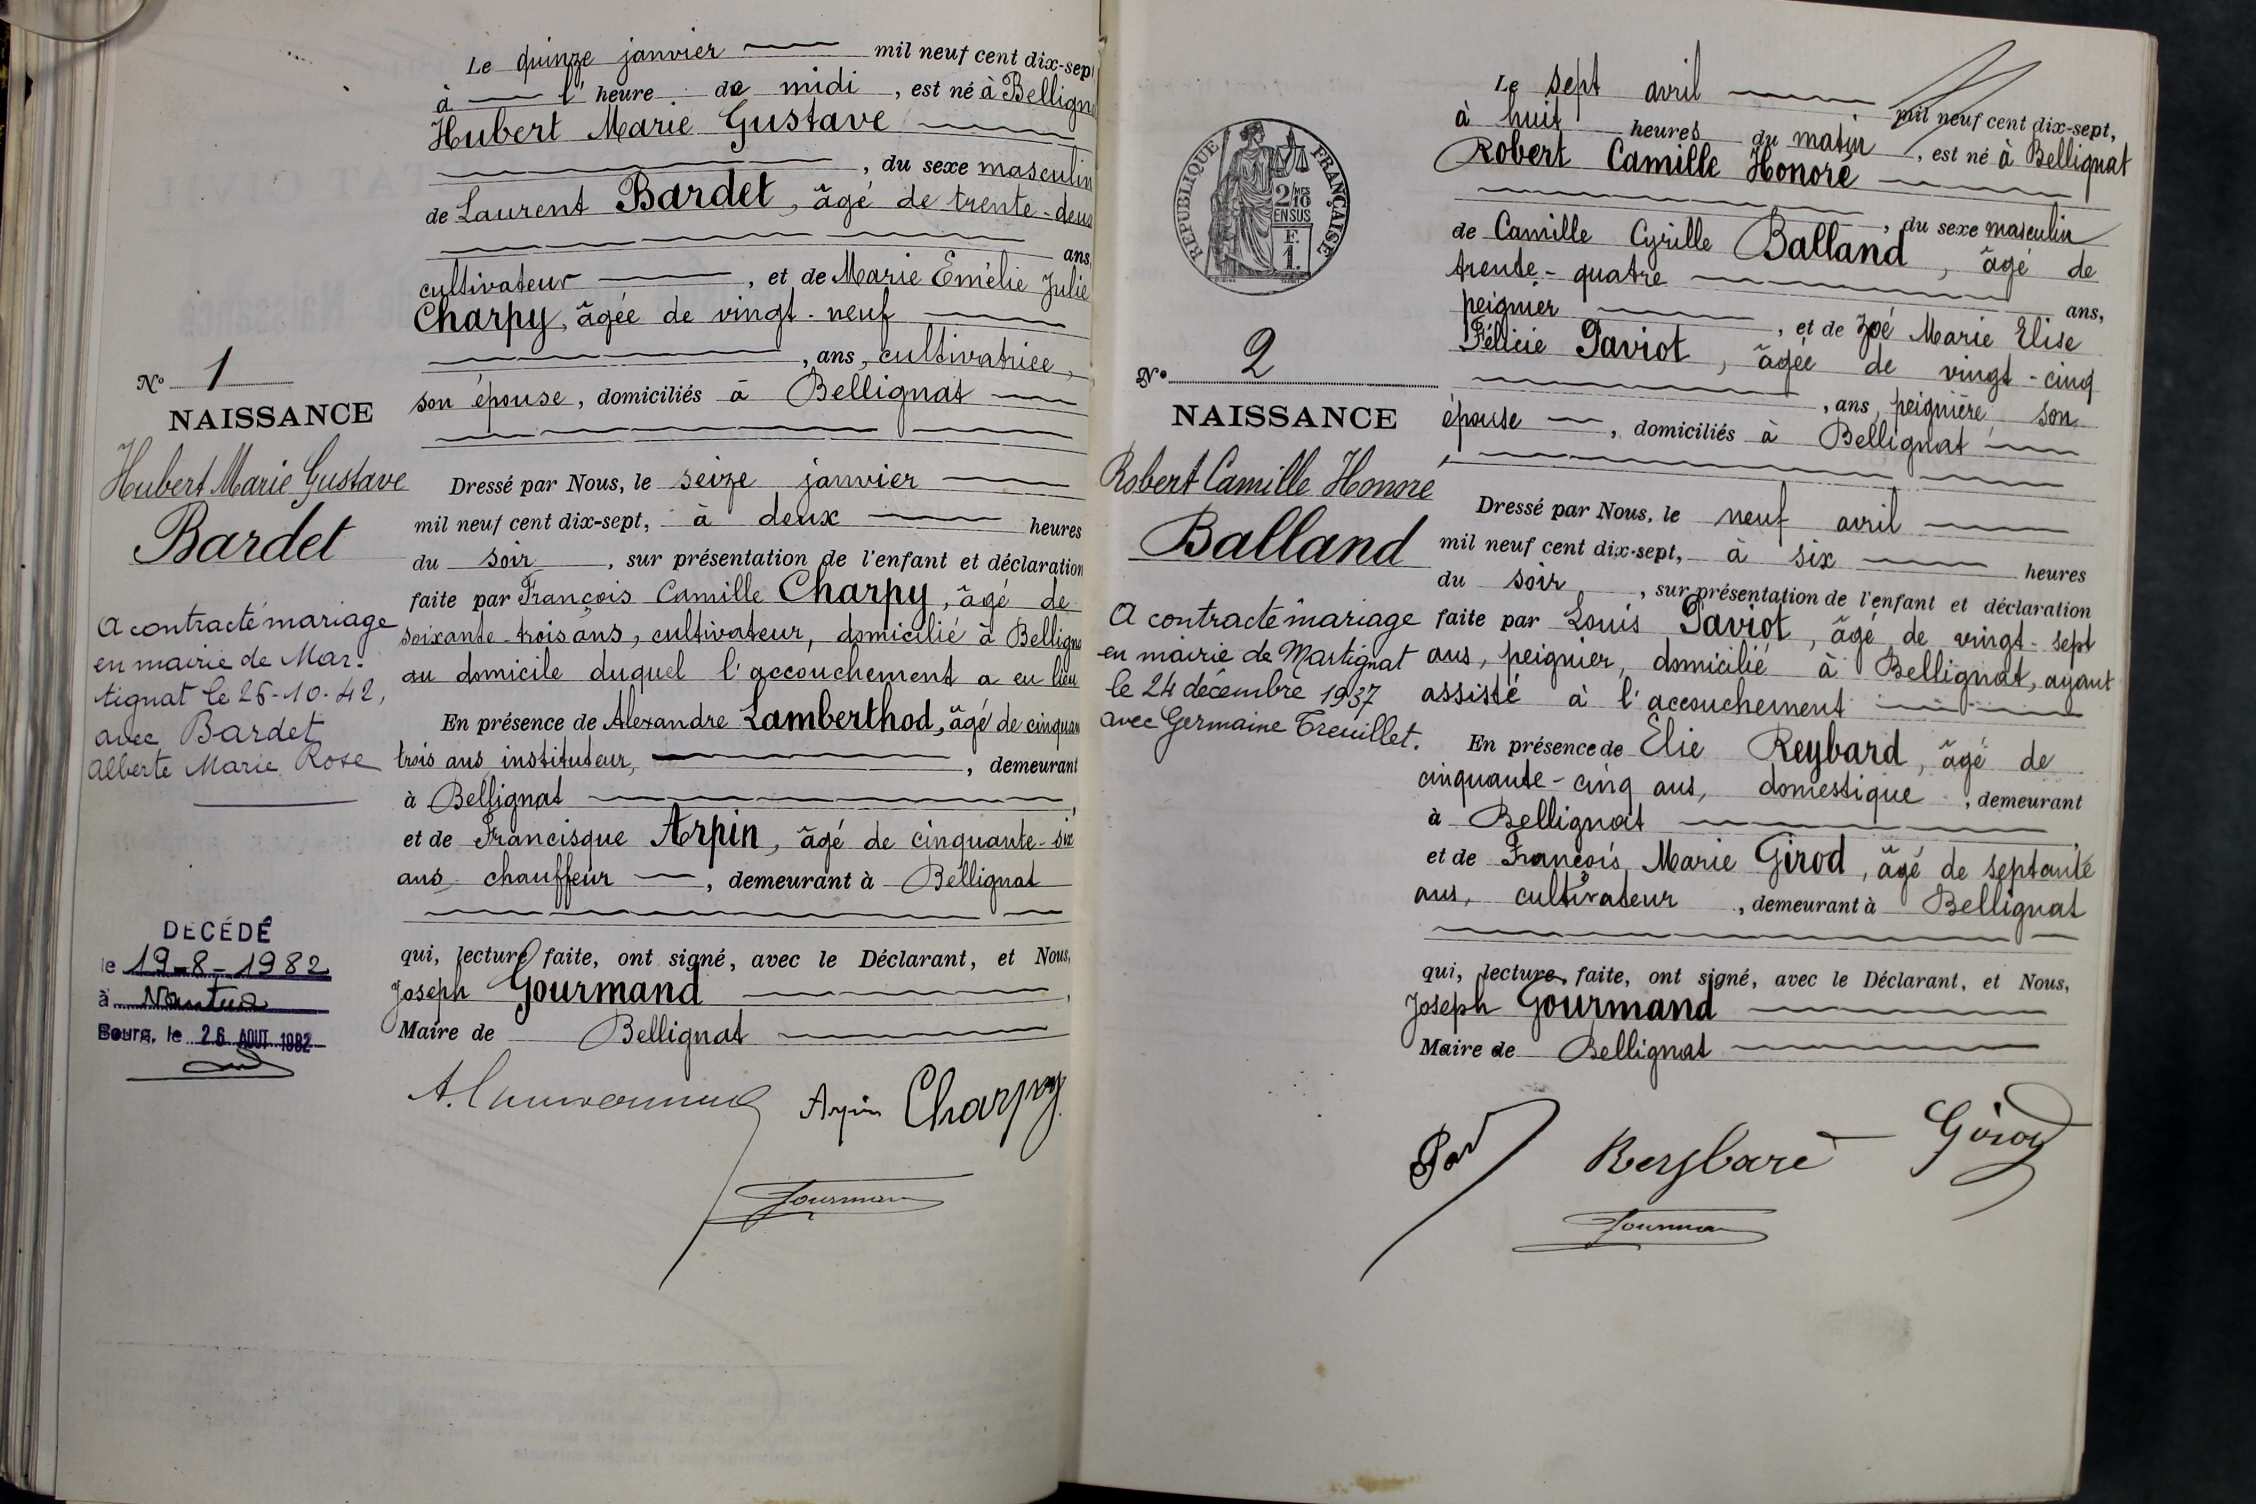 N° 1
NAISSANCE
Hubert Marie Gustave
Bardet
A contracté mariage
en mairie de Mar-
tignat le 26-10-42,
avec Bardet
Alberte Marie Rose
DÉCÉDÉ
le 19-8-1982
à Nantua
Bourg, le 26 AOUT 1982
Le quinze janvier mil neuf cent dix-sept
à l' heure de midi, est né à Bellign
Hubert Marie Gustave
, du sexe masculin
de Laurent Bardet, âgé de trente-deux
ans,
cultivateur, et de Marie Emélie Julie
Charpy, âgée de vingt-neuf
, ans, cultivatrice,
son épouse, domiciliés à Bellignat
Dressé par Nous, le seize janvier
mil neuf cent dix-sept, à deux heures
du soir, sur présentation de l'enfant et déclaration
faite par François Camille Charpy, âgé de
soixante-trois ans, cultivateur, domicilié à Bellign
au domicile duquel l'accouchement a eu lieu
En présence de Alexandre Lamberthod, âgé de cinquan
trois ans, instituteur, , demeurant
à Bellignat,
et de Francisque Arpin, âgé de cinquante-six
ans, chauffeur, demeurant à Bellignat
qui, lecture faite, ont signé, avec le Déclarant, et Nous,
Joseph Gourmand,
Maire de Bellignat
Arpin Charpy
Gourmand
REPUBLIQUE FRANÇAISE
2/10 MES
EN SUS
F.
1.
N° 2
NAISSANCE
Robert Camille Honoré
Balland
A contracté mariage
en mairie de Martignat
le 24 décembre 1937
avec Germaine Treuillet.
Le sept avril mil neuf cent dix-sept,
à huit heures du matin, est né à Bellignat
Robert Camille Honoré
, du sexe masculin
de Camille Cyrille Balland, âgé de
trente-quatre
ans,
peignier, et de Zoé Marie Elise
Félicie Paviot, âgée de vingt-cinq
, ans, peignière, son
épouse, domiciliés à Bellignat
Dressé par Nous, le neuf avril
mil neuf cent dix-sept, à six heures
du soir, sur présentation de l'enfant et déclaration
faite par Louis Paviot, âgé de vingt-sept
ans, peignier, domicilié à Bellignat, ayant
assisté à l'accouchement
En présence de Elie Reybard, âgé de
cinquante-cinq ans, domestique, demeurant
à Bellignat,
et de François Marie Girod, âgé de septante
ans, cultivateur, demeurant à Bellignat
qui, lecture faite, ont signé, avec le Déclarant, et Nous,
Joseph Gourmand
Maire de Bellignat
Reybard Girod
Gourmand